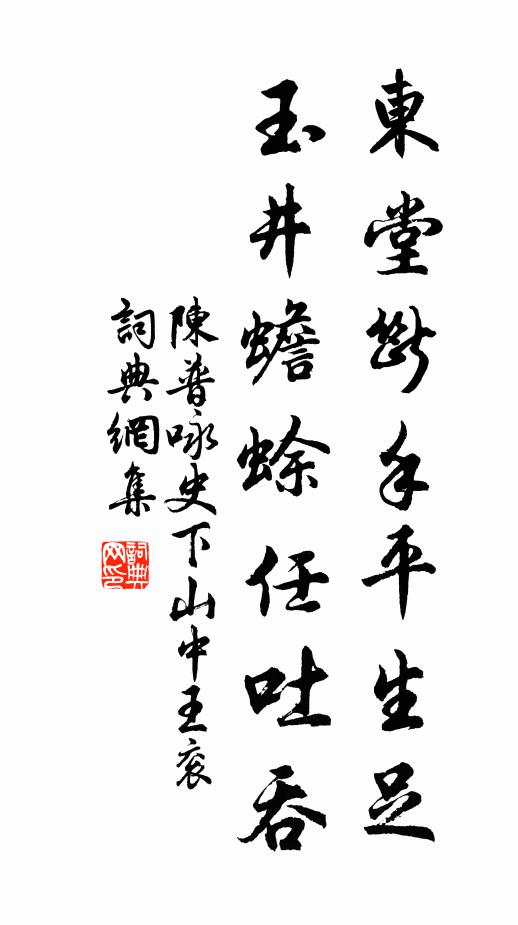 東堂斷手平生足
玉井蟾蜍任吐吞
陳普咏史下山中王裒
詞典網集
詞典
网印